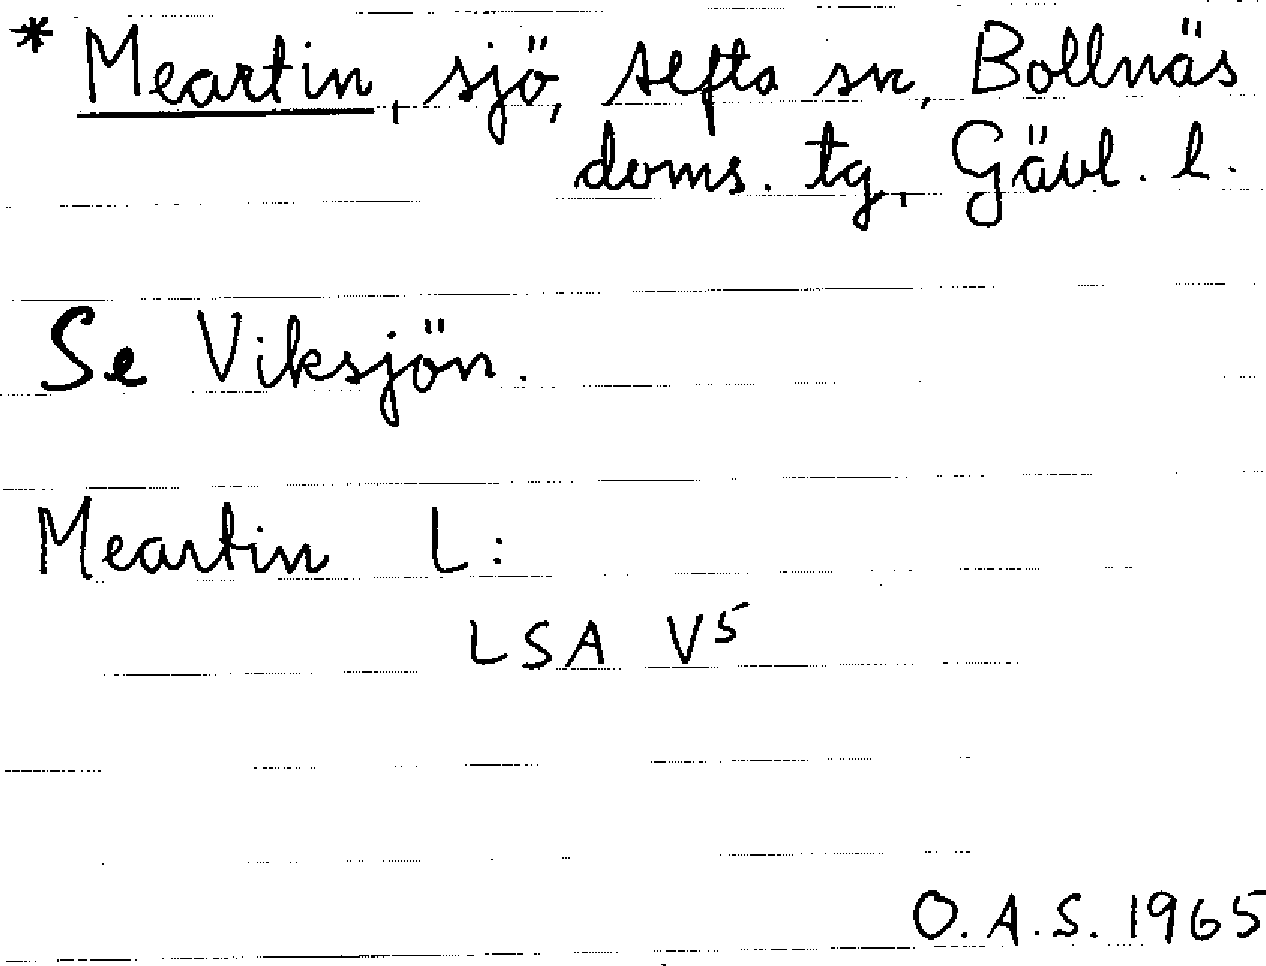 * Meartin, sjö, Alfta sn, Bollnäs
doms. tg, Gävl. l.
Se Viksjön.
Meartin L:
LSA V5
O.A.S. 1965